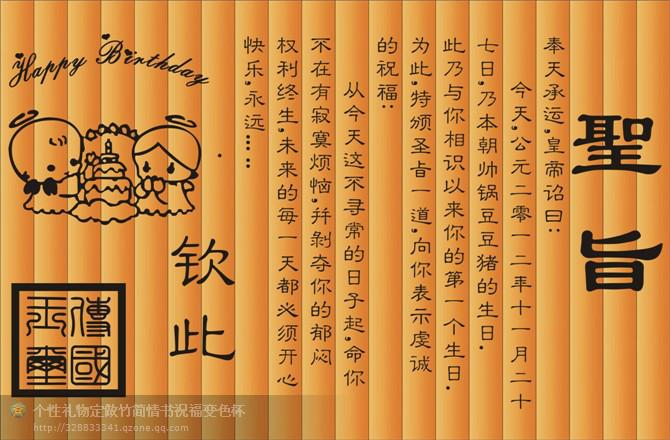 聖旨
奉天承运,皇帝诏曰:
今天,公元二零一二年十一月二十
七日,乃本朝帅锅豆豆猪的生日.
此乃与你相识以来你的第一个生日.
为此,特颁圣旨一道,向你表示虔诚
的祝福:
从今天这不寻常的日子起,命你
不在有寂寞烦恼,并剥夺你的郁闷
权利终生,未来的每一天都必须开心
快乐,永远……
钦此
Happy Birthday
傳國
玉璽
个性礼物定做竹简情书祝福变色杯
http://328833341.qzone.qq.com